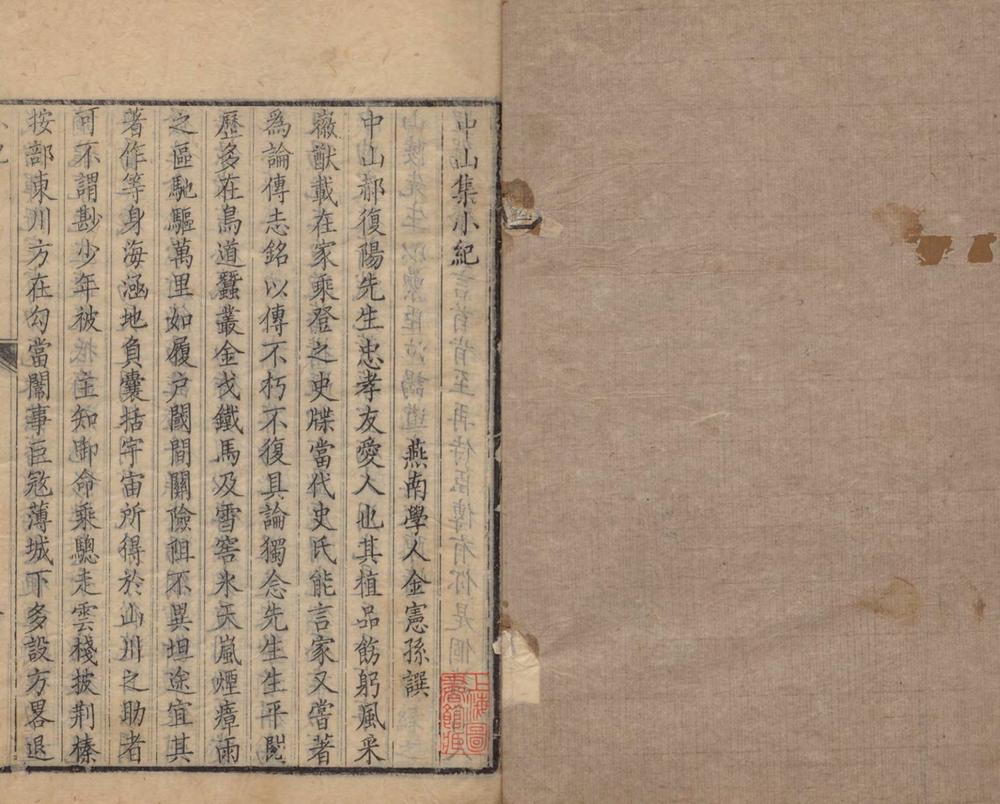 中山集小紀
燕南學人金憲孫譔
中山郝復陽先生忠孝友愛人也其植品飭躬風采
徽猷載在家乘登之史牒當代史氏能言家又嘗著
為論傳志銘以傳不朽不復具論獨念先生生平閱
歷多在鳥道蠶叢金戈鐵馬及雪窖氷天嵐煙瘴雨
之區馳驅萬里如履户閾間關險阻不異坦途宜其
著作等身海涵地負囊括宇宙所得於山川之助者
可不謂尠少年被 主知御命乘驄走雲棧披荆榛
按部東川方在勾當闈事巨寇薄城下多設方畧退
上海圖書館藏